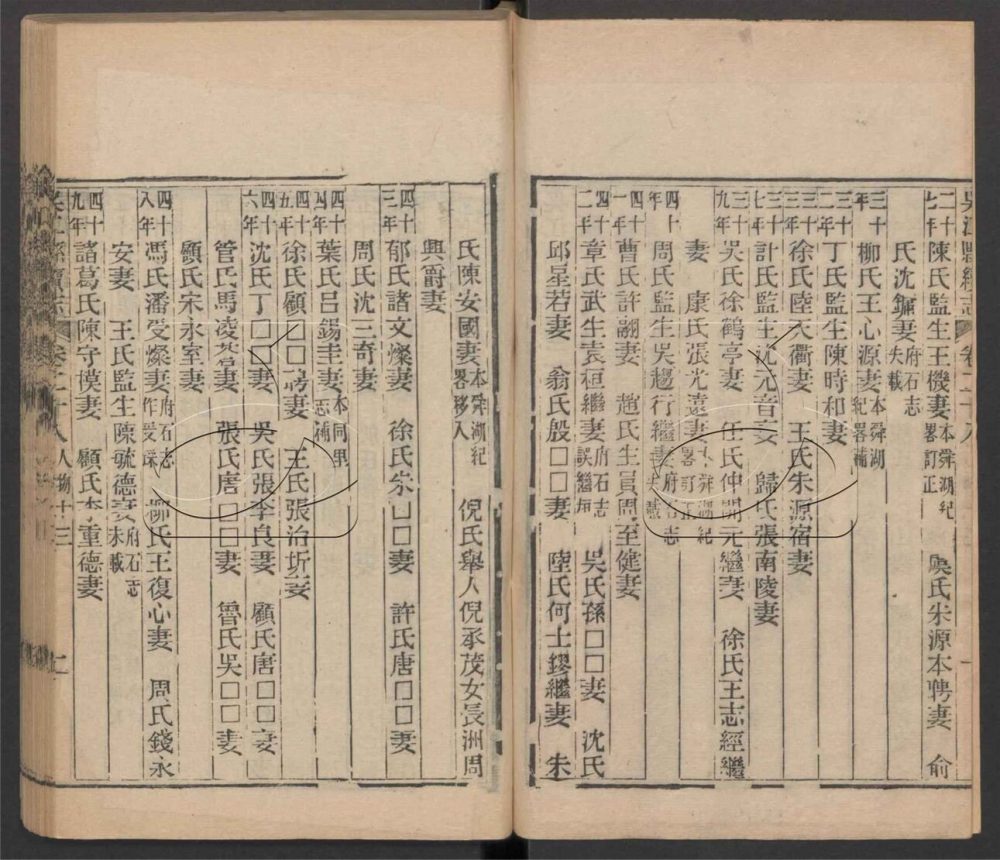 吳江縣續志 卷二十八
二十七年陳氏監生王機妻本舜湖紀畧訂正 吳氏朱源本聘妻 俞
氏沈鏞妻府石志失載
三十年柳氏王心源妻本舜湖紀畧補
三十二年丁氏監生陳時和妻
三十三年徐氏陸天衢妻 王氏朱源宿妻
三十七年計氏監生沈元音妻 歸氏張南陵妻
三十九年吳氏徐鶴亭妻 任氏仲開元繼妻 徐氏王志經繼
妻 康氏張光遠妻本舜湖紀畧訂正
四十年周氏監生吳趨行繼妻府石志失載
四十一年曹氏許翮妻 趙氏生員周至健妻
四十二年章氏武生袁桓繼妻府石志誤 吳氏孫□□妻 沈氏
邱星若妻 翁氏殷□□妻 陸氏何士鏐繼妻 朱
氏陳安國妻本舜湖紀畧移入 倪氏舉人倪承茂女長洲周
興爵妻
四十三年郁氏諸文燦妻 徐氏宋□□妻 許氏唐□□妻
周氏沈三奇妻
四十四年葉氏呂錫圭妻本同里志補
四十五年徐氏顧□□妻 王氏張治圻妻
四十六年沈氏丁□□妻 吳氏張李良妻 顧氏唐□□妻
管氏馬凌若妻 張氏唐□□妻 曾氏吳□□妻
顧氏宋永室妻
四十八年馮氏潘受燦妻府石志作受 柳氏王復心妻 周氏錢永
安妻 王氏監生陳毓德妻府石志未載
四十九年諸葛氏陳守模妻 顧氏李重德妻
吳江縣續志 卷二十八 人物十三